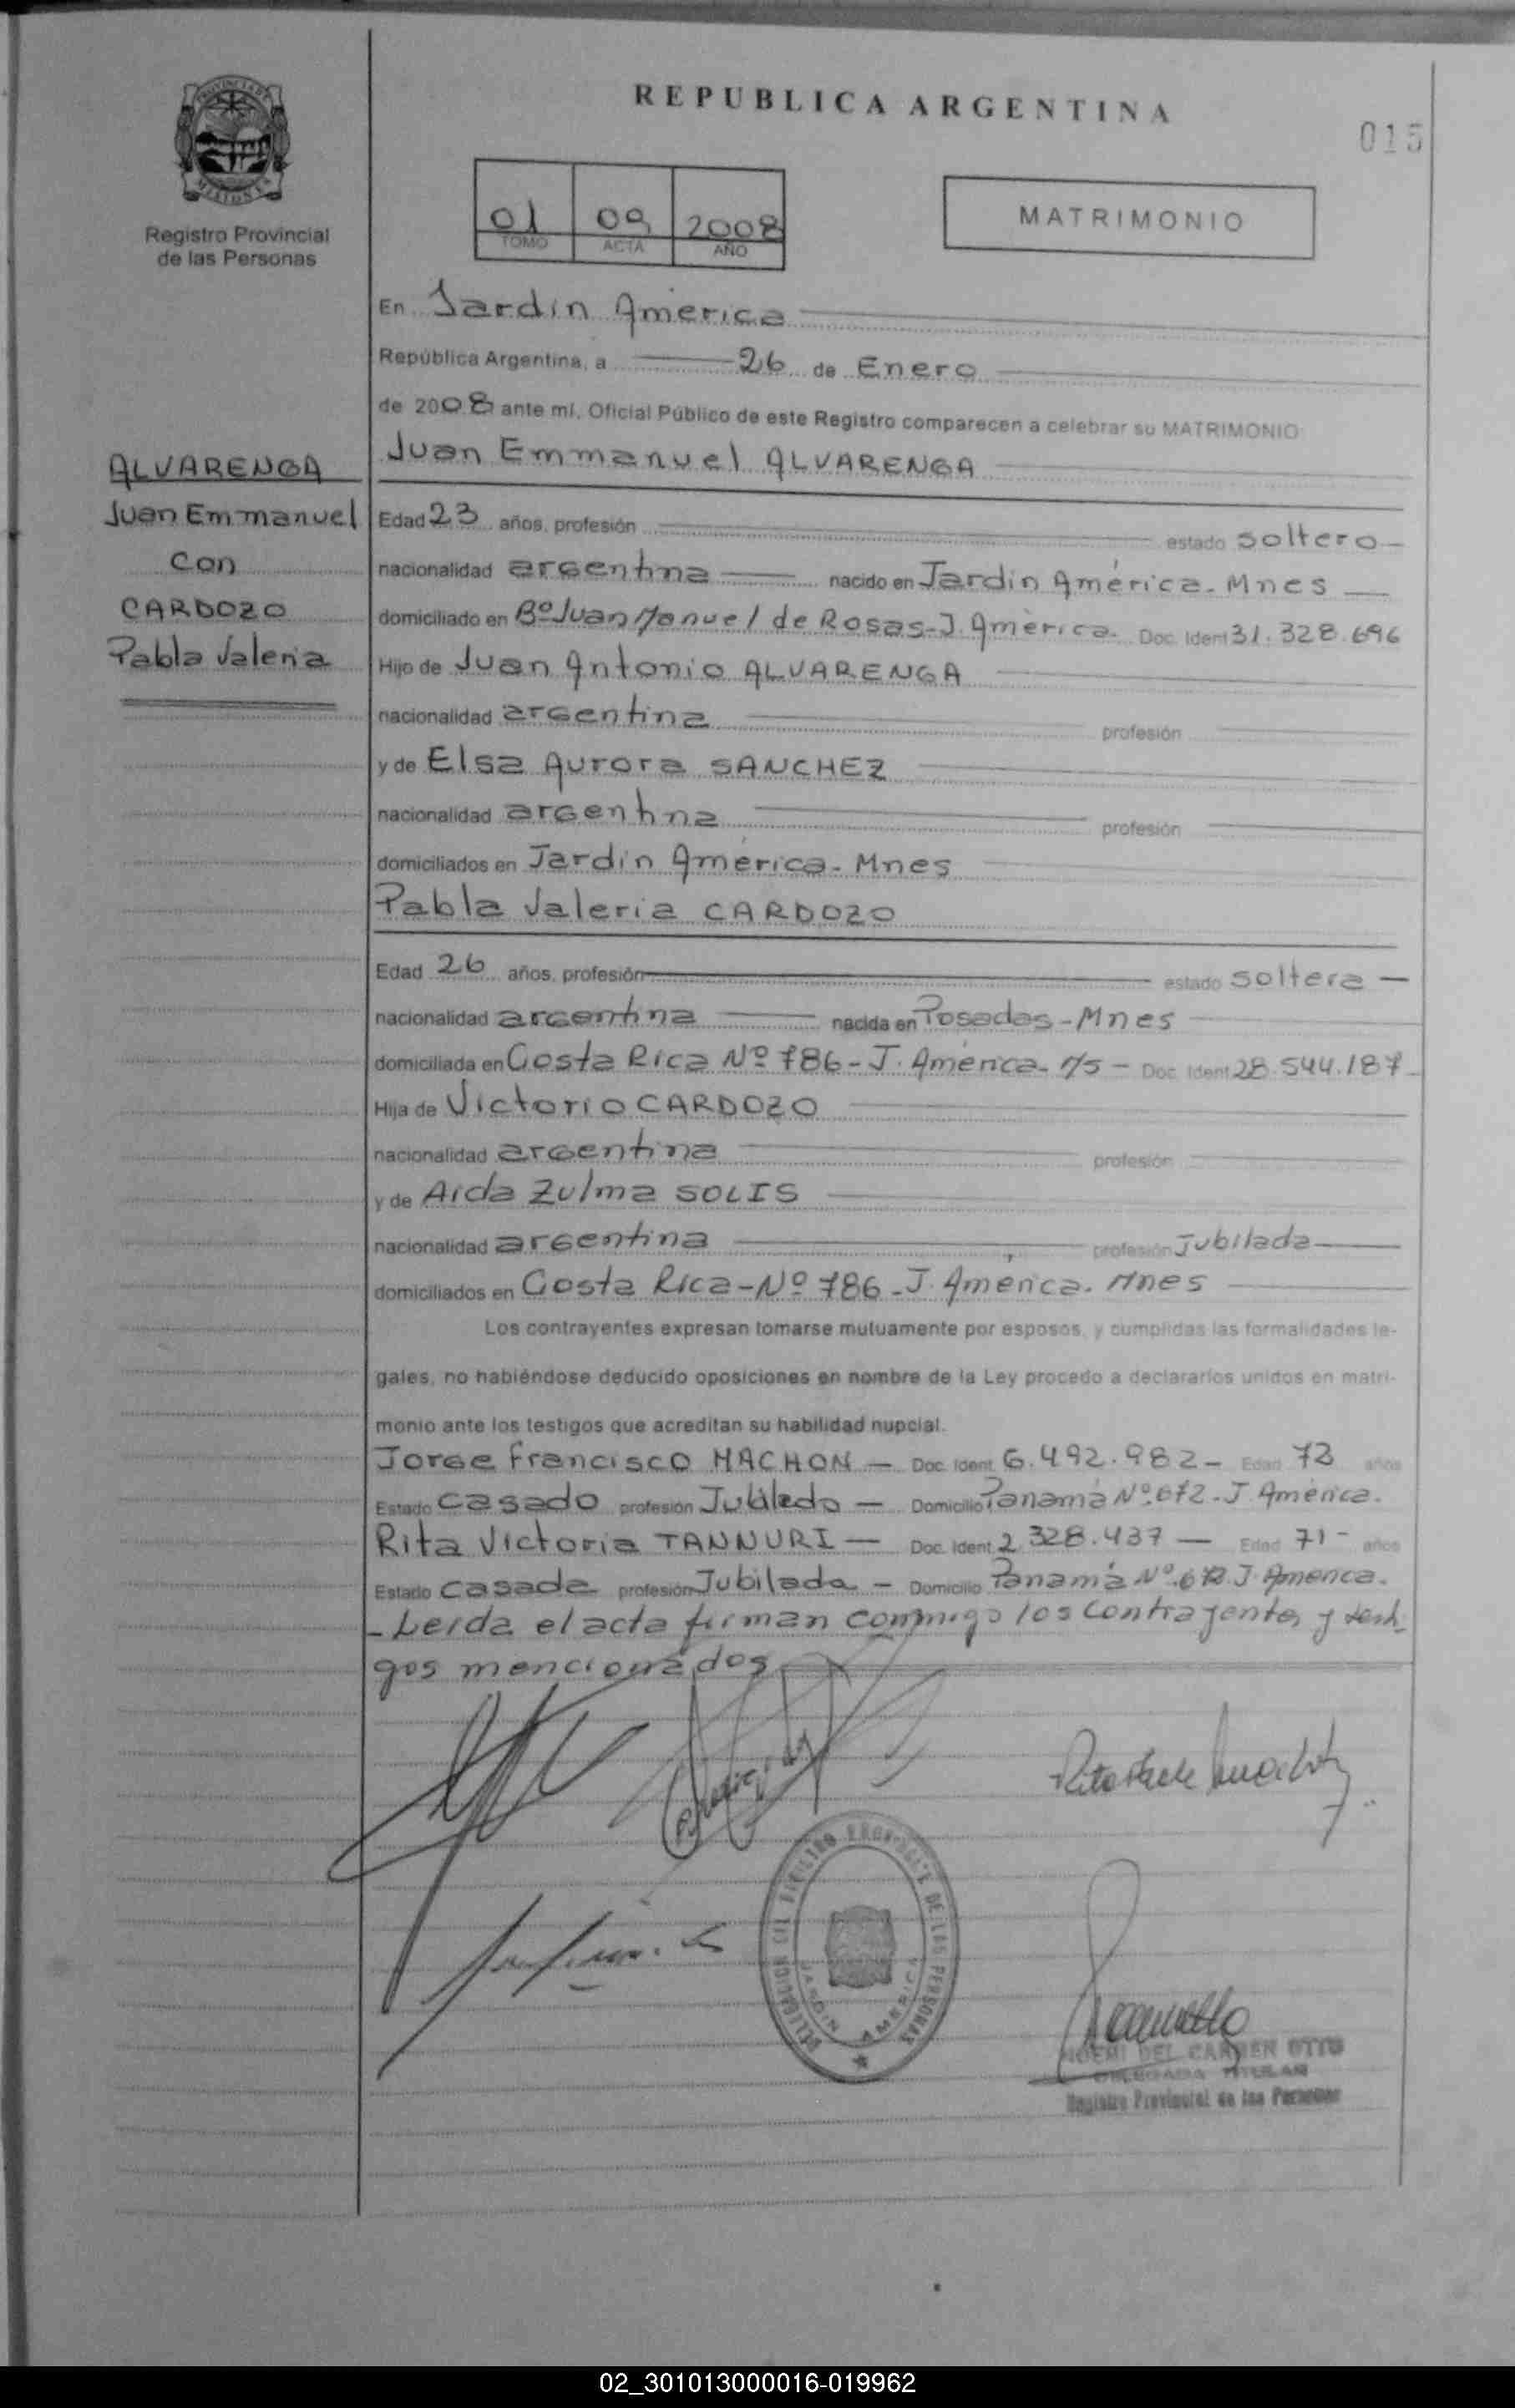 REPUBLICA ARGENTINA
015
PROVINCIA DE
MISIONES
Registro Provincial
de las Personas
01 09 2008
TOMO ACTA AÑO
MATRIMONIO
En Jardín América
República Argentina, a 26 de Enero
de 2008 ante mí, Oficial Público de este Registro comparecen a celebrar su MATRIMONIO
Juan Emmanuel ALVARENGA
ALVARENGA
Juan Emmanuel
Con
CARDOZO
Pabla Valeria
Edad 23 años, profesión estado soltero
nacionalidad argentina nacido en Jardín América - Mnes
domiciliado en Bº Juan Manuel de Rosas - J. América. Doc. Ident 31.328.696
Hijo de Juan Antonio ALVARENGA
nacionalidad argentina profesión
y de Elsa Aurora SANCHEZ
nacionalidad argentina profesión
domiciliados en Jardín América - Mnes
Pabla Valeria CARDOZO
Edad 26 años, profesión estado soltera
nacionalidad argentina nacida en Posadas - Mnes
domiciliada en Costa Rica Nº 786 - J. América - Doc. Ident 28.544.187
Hija de Victorio CARDOZO
nacionalidad argentina profesión
y de Aida Zulma SOLIS
nacionalidad argentina profesión Jubilada
domiciliados en Costa Rica - Nº 786 - J. América. Mnes
Los contrayentes expresan tomarse mutuamente por esposos, y cumplidas las formalidades le-
gales, no habiéndose deducido oposiciones en nombre de la Ley procedo a declararlos unidos en matri-
monio ante los testigos que acreditan su habilidad nupcial.
Jorge Francisco MACHON - Doc. Ident. 6.492.982 - Edad años
Estado casado profesión Jubilado - Domicilio Panamá Nº 672 - J. América.
Rita Victoria TANNURI - Doc. Ident. 2.328.437 - Edad 71 - años
Estado casada profesión Jubilada - Domicilio Panamá Nº J. América.
- Leída el acta firman conmigo los contrayentes y testi-
gos mencionados
DELEGACION DEL REGISTRO PROVINCIAL DE LAS PERSONAS
JARDIN AMERICA
NOEMI DEL CARMEN OTTO
DELEGADA TITULAR
Registro Provincial de las Personas
02_301013000016-019962